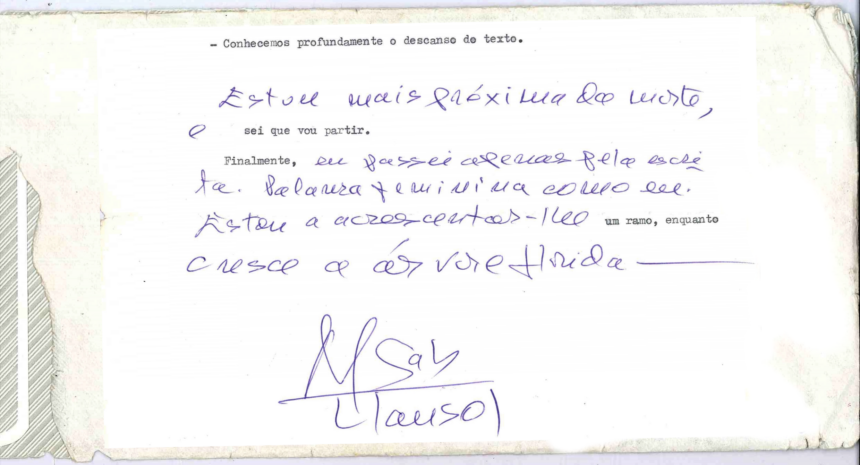 - Conhecemos profundamente o descanso do texto.
Estou mais próxima da morte,
e sei que vou partir.
Finalmente, eu passei apenas pela escri
ta. Balanza feminina como eu.
Estou a acrescentar-lhe um ramo, enquanto
cresce a árvore florida
M Gab
Llansol